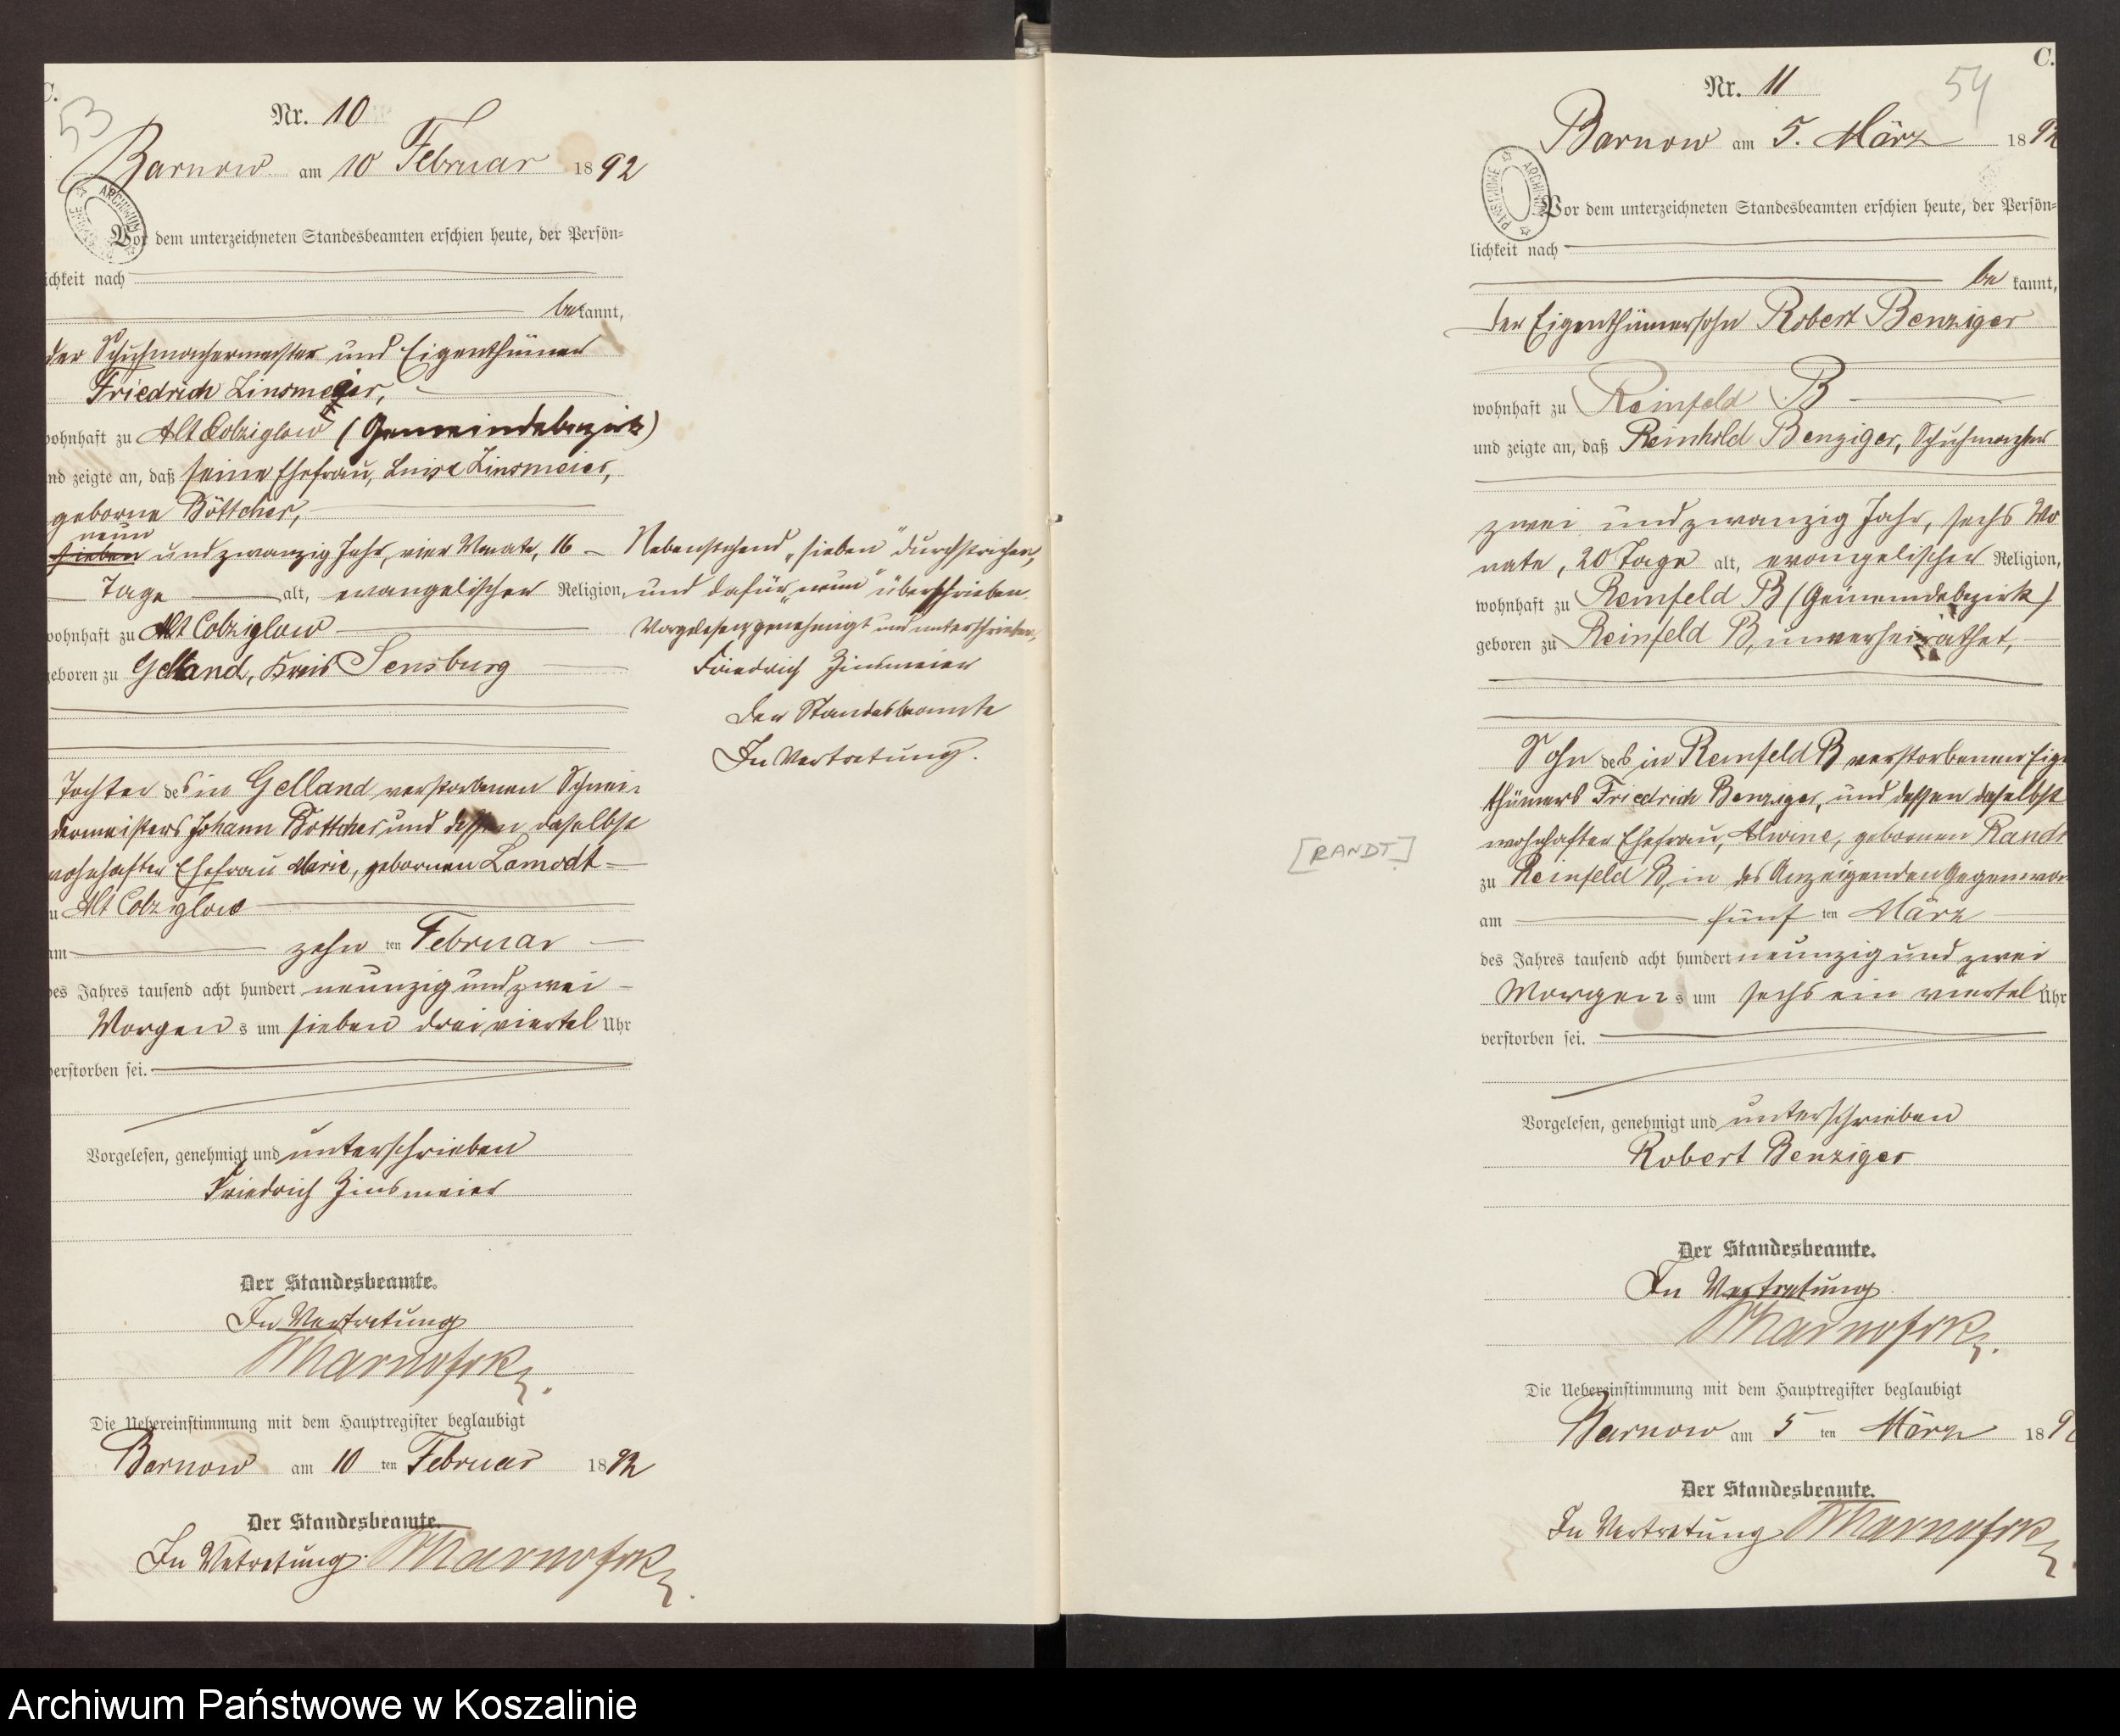 C.
53
Nr. 10
Barnow am 10 Februar 1892
Vor dem unterzeichneten Standesbeamten erschien heute, der Persön-
lichkeit nach
bekannt,
der Schuhmachermeister und Eigenthümer
Friedrich Zinsmeier,
wohnhaft zu Alt Colziglow (Gemeindebezirk)
und zeigte an, daß seine Ehefrau, Luise Zinsmeier,
geborne Böttcher,
neun
sieben und zwanzig Jahr, vier Monate, 16
Tage alt, evangelischer Religion,
wohnhaft zu Alt Colziglow
geboren zu Gelland, Kreis Sensburg
Tochter des in Gelland verstorbenen Schnei-
dermeisters Johann Böttcher und dessen daselbst
wohnhafter Ehefrau Marie, gebornen Lamodt
zu Alt Colziglow
am zehn ten Februar
des Jahres tausend acht hundert neunzig und zwei
Morgens um sieben drei viertel Uhr
verstorben sei.
Vorgelesen, genehmigt und unterschrieben
Friedrich Zinsmeier
Der Standesbeamte.
In Vertretung
Die Uebereinstimmung mit dem Hauptregister beglaubigt
Barnow am 10 ten Februar 1892
Der Standesbeamte.
In Vetretung.
Nebenstehend „sieben" durchstrichen,
und dafür „neun" überschrieben.
Vorgelesen genehmigt und unterschrieben,
Friedrich Zinsmeier
Der Standesbeamte
In Vertretung.
C.
54
Nr. 11
Barnow am 5. März 1892
Vor dem unterzeichneten Standesbeamten erschien heute, der Persön-
lichkeit nach
bekannt,
der Eigenthümersohn Robert Benziger
wohnhaft zu Reinfeld B
und zeigte an, daß Reinhold Benziger, Schuhmacher
zwei und zwanzig Jahr, sechs Mo
nate, 20 Tage alt, evangelischer Religion,
wohnhaft zu Reinfeld B (Gemeindebezirk)
geboren zu Reinfeld B, unverheirathet,
Sohn des in Reinfeld B verstorbenen Eigen
thümers Friedrich Benziger, und dessen daselbst
wohnhafter Ehefrau, Alwine, gebornen Randt
[RANDT]
zu Reinfeld B, in des Anzeigenden Gegenwart
am fünf ten März
des Jahres tausend acht hundert neunzig und zwei
Morgens um sechs ein viertel Uhr
verstorben sei.
Vorgelesen, genehmigt und unterschrieben
Robert Benziger
Der Standesbeamte.
In Vertretung
Die Uebereinstimmung mit dem Hauptregister beglaubigt
Barnow am 5 ten März 189
Der Standesbeamte.
In Vertretung
Archiwum Państwowe w Koszalinie